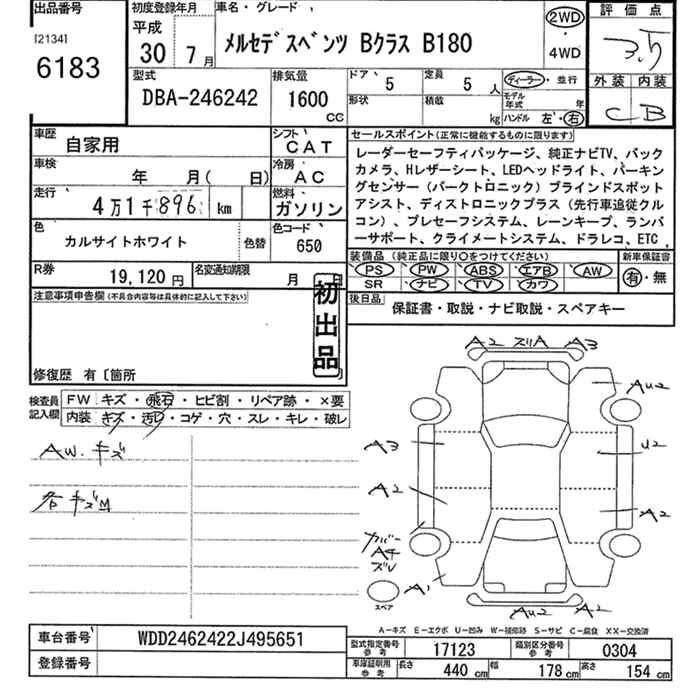 出品番号
[2134]
6183
初度登録年月
平成
30年 7月
車名・グレード
メルセデスベンツ Bクラス B180
2WD
・
4WD
評価点
3.5
外装 内装
C B
型式
DBA-246242
排気量
1600
CC
ドア 5
定員 5人
形状
積載 kg
ディーラー・並行
モデル年式 年
ハンドル 左・右
車歴 自家用
シフト CAT
車検 年 月( 日)
冷房 AC
走行 4万1千896 km
燃料 ガソリン
色 カルサイトホワイト
色替
色コード 650
R券 19,120円
名変通知期限 月 日
セールスポイント(正常に機能するものに限ります)
レーダーセーフティパッケージ、純正ナビTV、バック
カメラ、Hレザーシート、LEDヘッドライト、パーキン
グセンサー(パークトロニック)ブラインドスポット
アシスト、ディストロニックプラス(先行車追従クル
コン)、プレセーフシステム、レーンキープ、ランバ
ーサポート、クライメートシステム、ドラレコ、ETC、
装備品(純正品に限り○をつけてください)
PS PW ABS エアB AW
SR ナビ TV カワ
新車保証書
有・無
後日品 保証書・取説・ナビ取説・スペアキー
注意事項申告欄(不具合内容等は具体的に記入して下さい)
初出品
修復歴 有〔箇所
検査員記入欄
FW キズ・飛石・ヒビ割・リペア跡・×要
内装 キズ・汚れ・コゲ・穴・スレ・キレ・破レ
AW.キズ
各キズM
A2 ズリA A3
AU2
A3
U2
A2
A2
カバー
Aチ
ズレ
A1
AU2 A2
スペア
A−キズ E−エクボ U−凹み W−補修跡 S−サビ C−腐食 XX−交換済
車台番号 WDD2462422J495651
登録番号
型式指定番号参考 17123
類別区分番号参考 0304
車庫証明用参考 長さ 440cm 幅 178cm 高さ 154cm